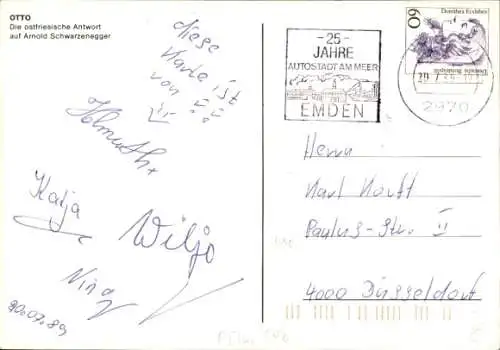 OTTO
Die ostfriesische Antwort
auf Arnold Schwarzenegger
diese
Karte ist
von
Helmuth +
Katja
Wiljo
Nina
20.07.89
- 25 -
JAHRE
AUTOSTADT AM MEER
EMDEN
2970
60
Deutsche Bundespost
Herrn
Karl
Paulus-Str. II
4000 Düsseldorf